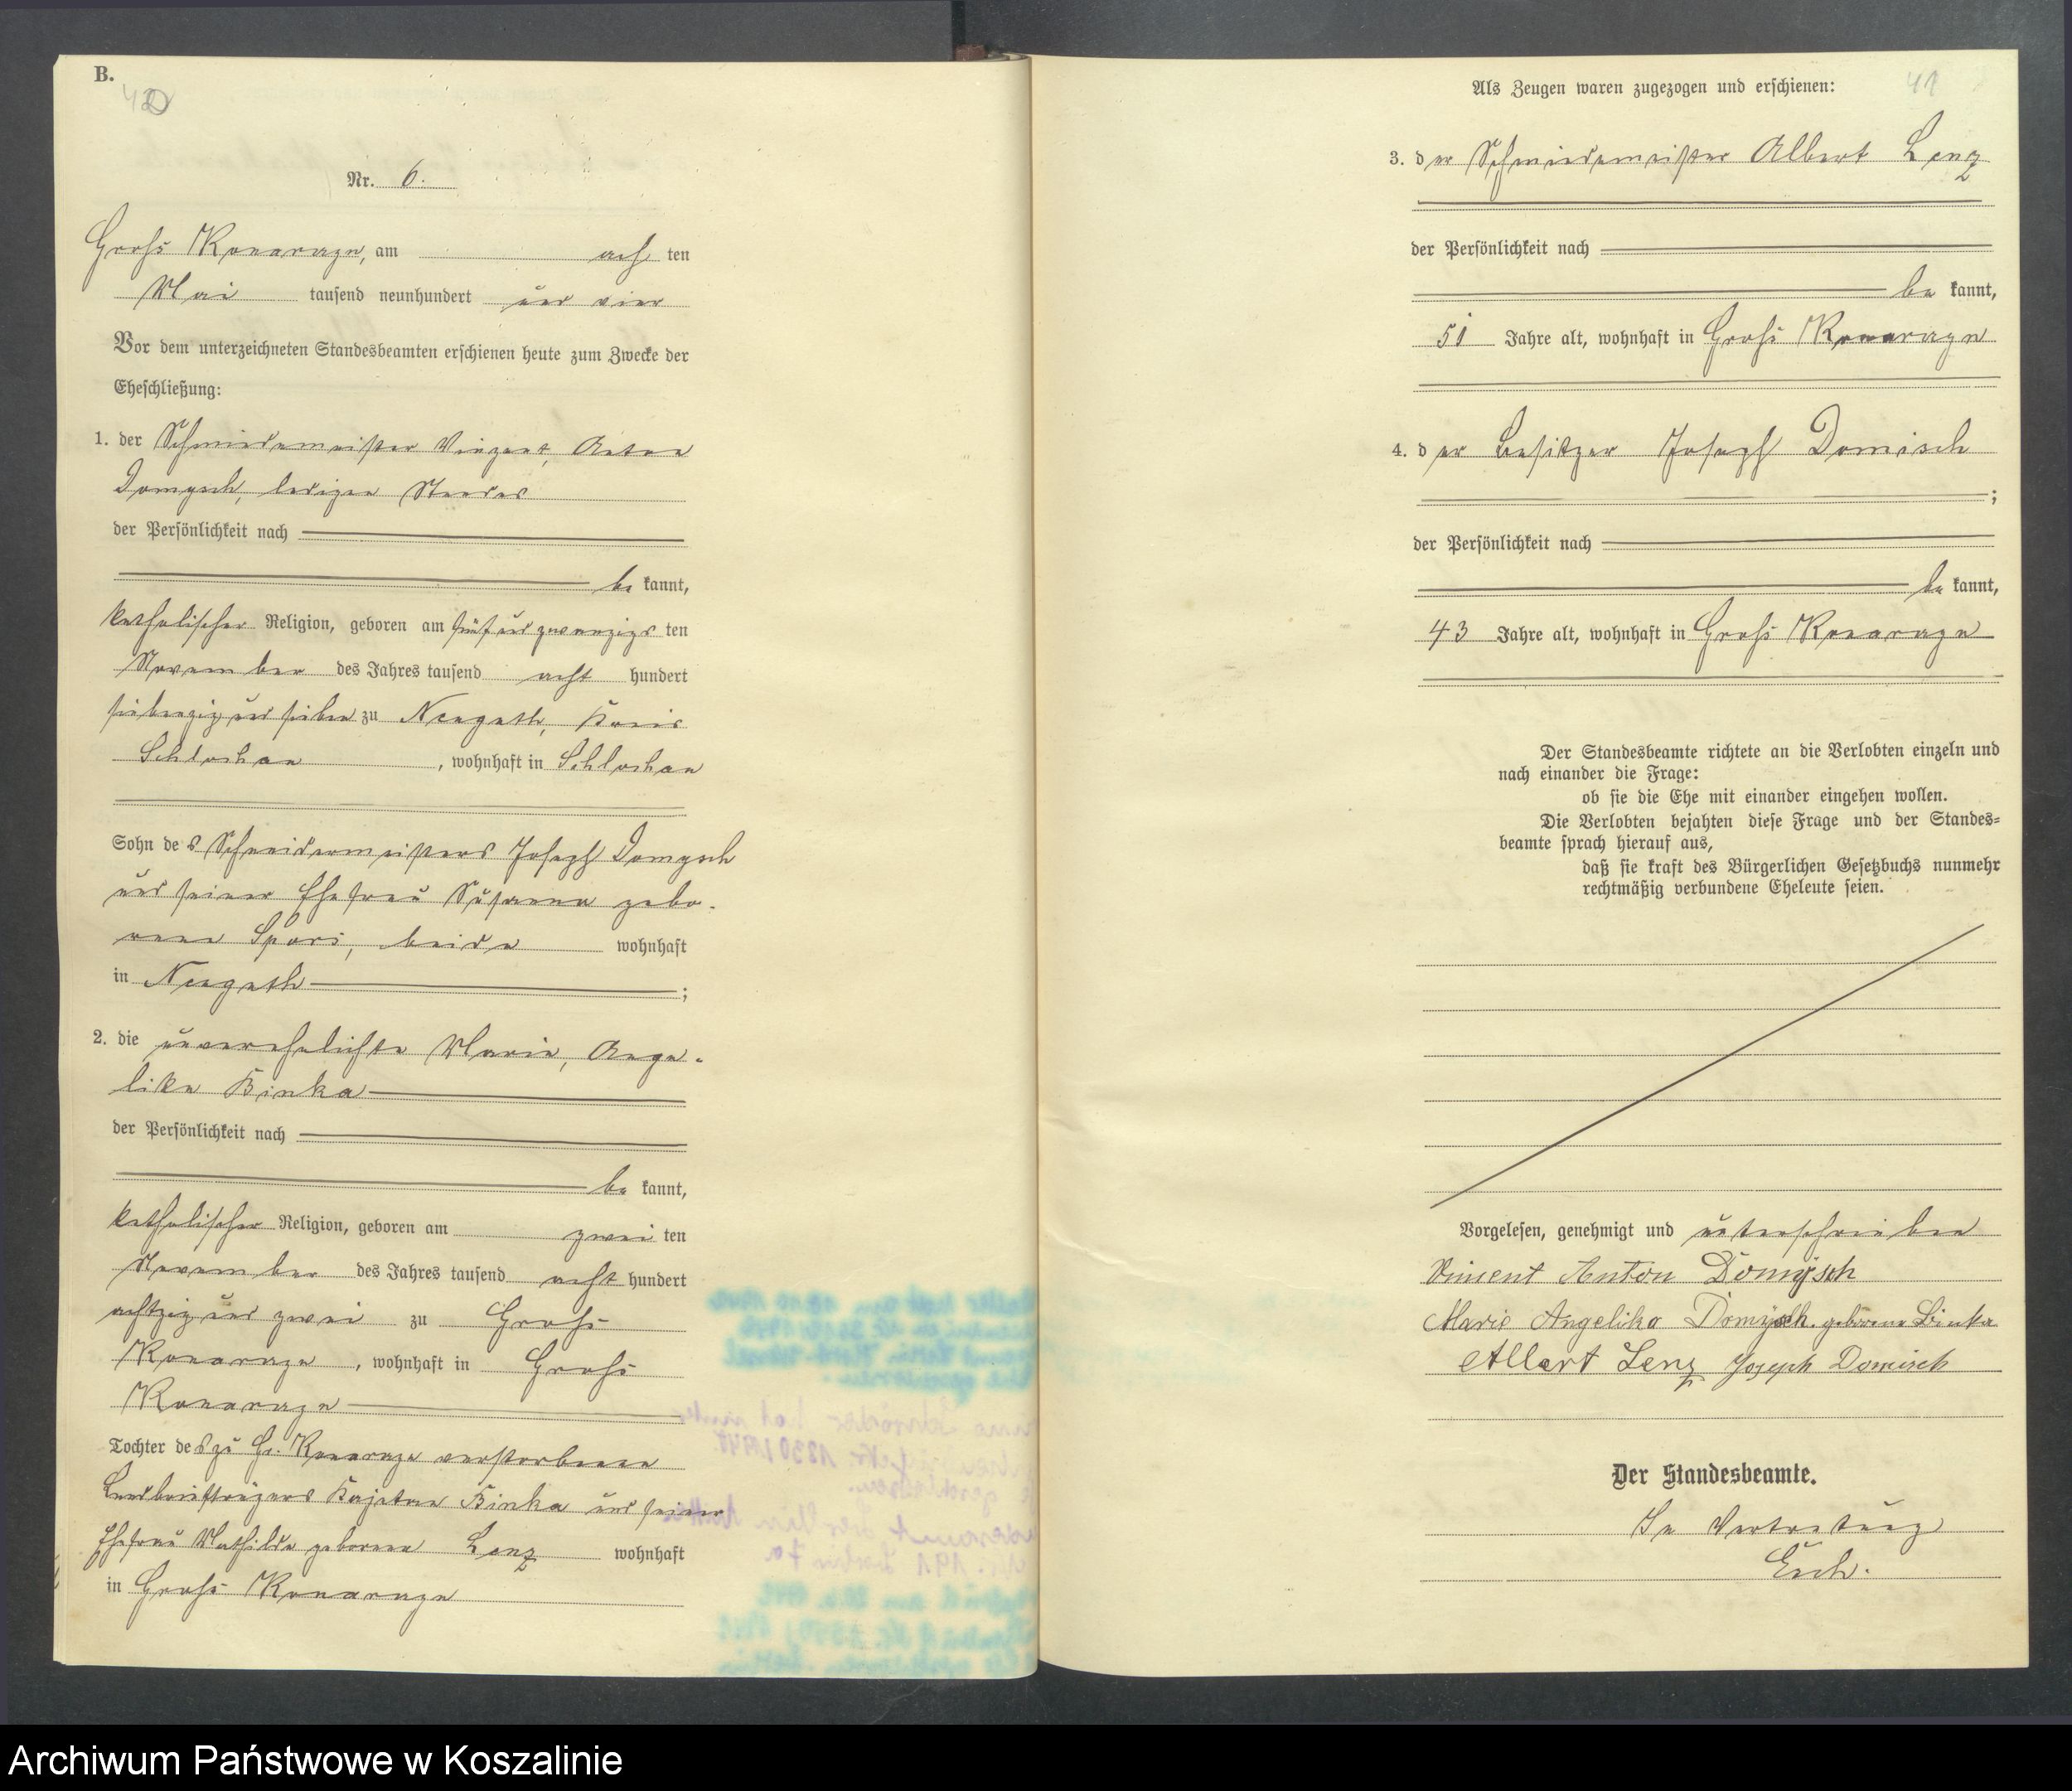 B.
Nr. 6.
Gross Konarzyn, am acht ten
Mai tausend neunhundert und vier
Vor dem unterzeichneten Standesbeamten erschienen heute zum Zwecke der
Eheschließung:
1. der Schmiedemeister Vinzent, Anton
Domysch, ledigen Standes
der Persönlichkeit nach
be kannt,
katholischer Religion, geboren am fünfundzwanzigs ten
November des Jahres tausend acht hundert
siebenzig und sieben zu Neuguth, Kreis
Schlochau, wohnhaft in Schlochau
Sohn des Schneidermeisters Joseph Domysch
und seiner Ehefrau Susanna gebo-
rene Spors, beide wohnhaft
in Neuguth ;
2. die unverehelichte Maria, Ange-
lika Binka
der Persönlichkeit nach
be kannt,
katholischer Religion, geboren am zwei ten
November des Jahres tausend acht hundert
achtzig und zwei zu Gross
Konarzyn, wohnhaft in Gross
Konarzyn
Tochter des zu Gr. Konarzyn verstorbenen
Landbriefträgers Kajetan Binka und seiner
Ehefrau Mathilde geborene Lenz wohnhaft
in Gross Konarzyn
41
Als Zeugen waren zugezogen und erschienen:
3. der Schmiedemeister Albert Lenz
der Persönlichkeit nach
be kannt,
51 Jahre alt, wohnhaft in Gross Konarzyn
4. der Besitzer Joseph Domisch
;
der Persönlichkeit nach
be kannt,
43 Jahre alt, wohnhaft in Gross Konarzyn
Der Standesbeamte richtete an die Verlobten einzeln und
nach einander die Frage:
ob sie die Ehe mit einander eingehen wollen.
Die Verlobten bejahten diese Frage und der Standes-
beamte sprach hierauf aus,
daß sie kraft des Bürgerlichen Gesetzbuchs nunmehr
rechtmäßig verbundene Eheleute seien.
Vorgelesen, genehmigt und unterschrieben
Vincent Anton Domysch
Marie Angelika Domysch geborene Binka
Albert Lenz Joseph Domisch
Der Standesbeamte.
In Vertretung
Esch.
Archiwum Państwowe w Koszalinie